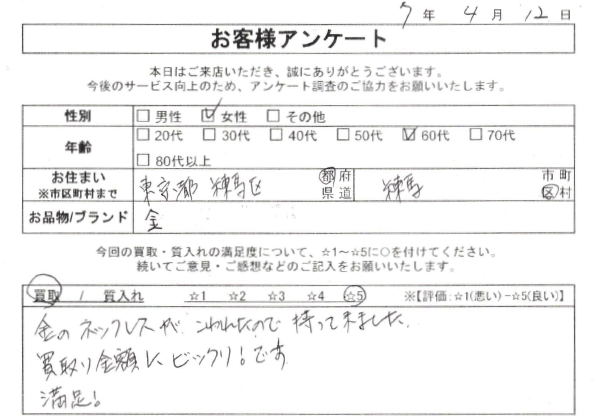 7年 4月 12日
お客様アンケート
本日はご来店いただき、誠にありがとうございます。
今後のサービス向上のため、アンケート調査のご協力をお願いいたします。
性別 □男性 ☑女性 □その他
年齢 □20代 □30代 □40代 □50代 ☑60代 □70代
□80代以上
お住まい
※市区町村まで
東京都 練馬区 都府県道 練馬 市町区村
お品物/ブランド 金
今回の買取・質入れの満足度について、☆1～☆5に○を付けてください。
続いてご意見・ご感想などのご記入をお願いいたします。
買取 / 質入れ ☆1 ☆2 ☆3 ☆4 ☆5 ※【評価:☆1(悪い)－☆5(良い)】
金のネックレスが、こわれたので持って来ました。
買取り金額に、ビックリ!です
満足!